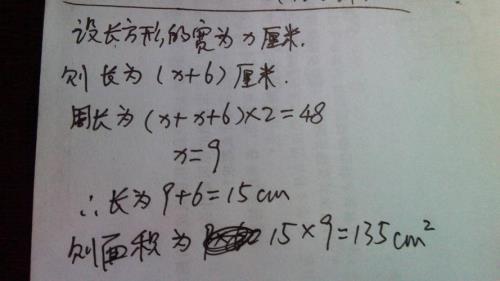 设长方形的宽为x厘米.
则长为(x+6)厘米.
周长为(x+x+6)×2=48
x=9
∴长为9+6=15cm
则面积为 15×9=135cm²